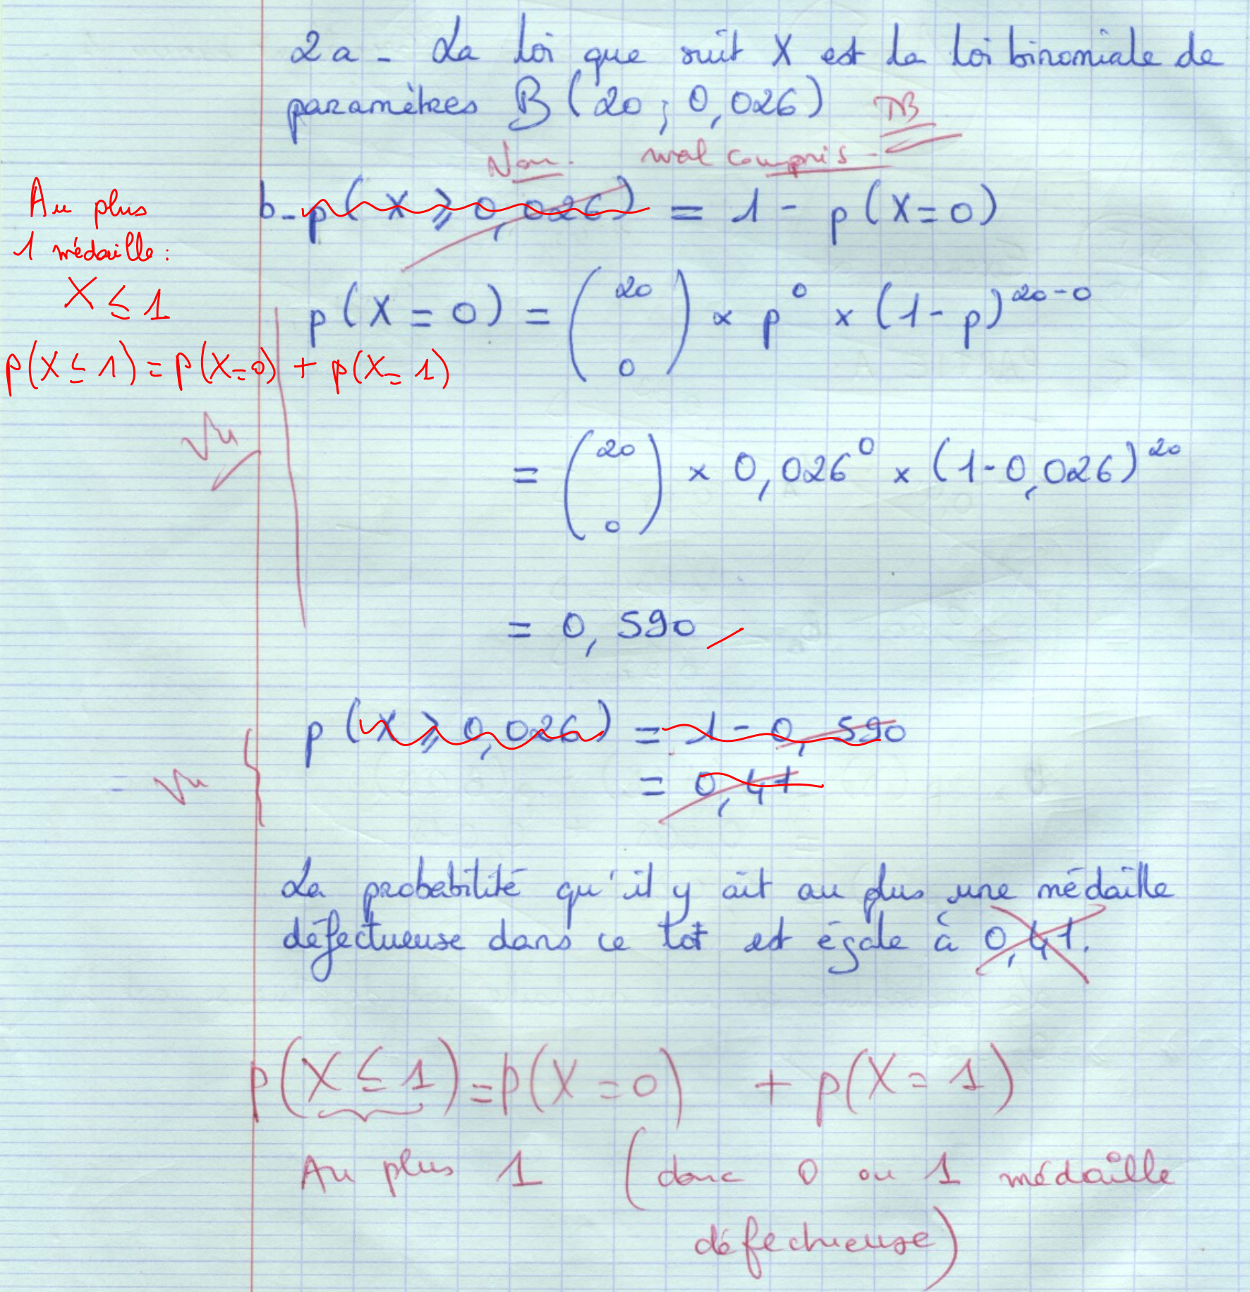 2a - La loi que suit X est la loi binomiale de
paramètres B(20 ; 0,026) TB
Non. mal compris
Au plus
1 médaille :
X ≤ 1
p(X ≤ 1) = p(X=0) + p(X=1)
b - p(X ≥ 0,026) = 1 - p(X=0)
p(X = 0) = (20 0) × p^0 × (1-p)^20-0
Vu
= (20 0) × 0,026^0 × (1-0,026)^20
= 0,590
p(X ≥ 0,026) = 1 - 0,590
Vu
= 0,41
La probabilité qu'il y ait au plus une médaille
défectueuse dans ce lot est égale à 0,41.
p(X ≤ 1) = p(X = 0) + p(X = 1)
Au plus 1 (donc 0 ou 1 médaille
défectueuse)